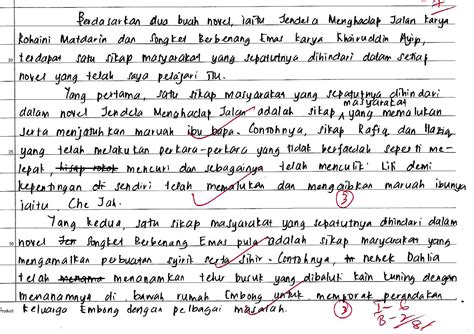 Berdasarkan dua buah novel, iaitu Jendela Menghadap Jalan karya
Rohaini Matdarin dan Songket Berbenang Emas karya Khairuddin Ayip,
terdapat satu sikap masyarakat yang sepatutnya dihindari dalam setiap
novel yang telah saya pelajari itu.
Yang pertama, satu sikap masyarakat yang sepatutnya dihindari
dalam novel Jendela Menghadap Jalan adalah sikap masyarakat yang memalukan
serta menjatuhkan maruah ibu bapa. Contohnya, sikap Rafiq dan Haziq
yang telah melakukan perkara-perkara yang tidak berfaedah seperti me-
lepak, hisap rokok mencuri dan sebagainya telah menculik Lili demi
kepentingan di sendiri telah memalukan dan mengaibkan maruah ibunya
iaitu Che Jah.
3
Yang kedua, satu sikap masyarakat yang sepatutnya dihindari dalam
novel Songket Berbenang Emas pula adalah sikap masyarakat yang
mengamalkan perbuatan syirik serta sihir. Contohnya, nenek Dahlia
telah menanamkan telur busuk yang dibaluti kain kuning dengan
menanamnya di bawah rumah Embong untuk memporak perandakan
keluarga Embong dengan pelbagai masalah.